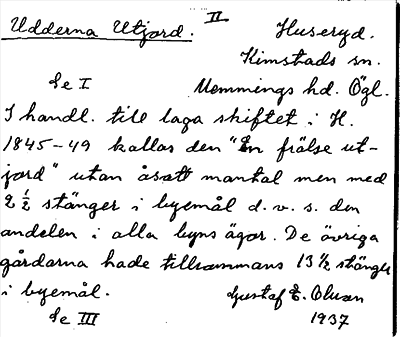 II
Udderna Utjord. Huseryd.
Kimstads sn.
Se I Memmings hd. Ögl.
I handl. till laga skiftet i H.
1845-49 kallas den "En frälse ut-
jord" utan åsatt mantal men med
2 1/2 stänger i byemål d. v. s. den
andelen i alla byns ägor. De övriga
gårdarna hade tillsammans 13 1/2 stänger
i byemål. Gustaf E. Olsson
Se III 1937